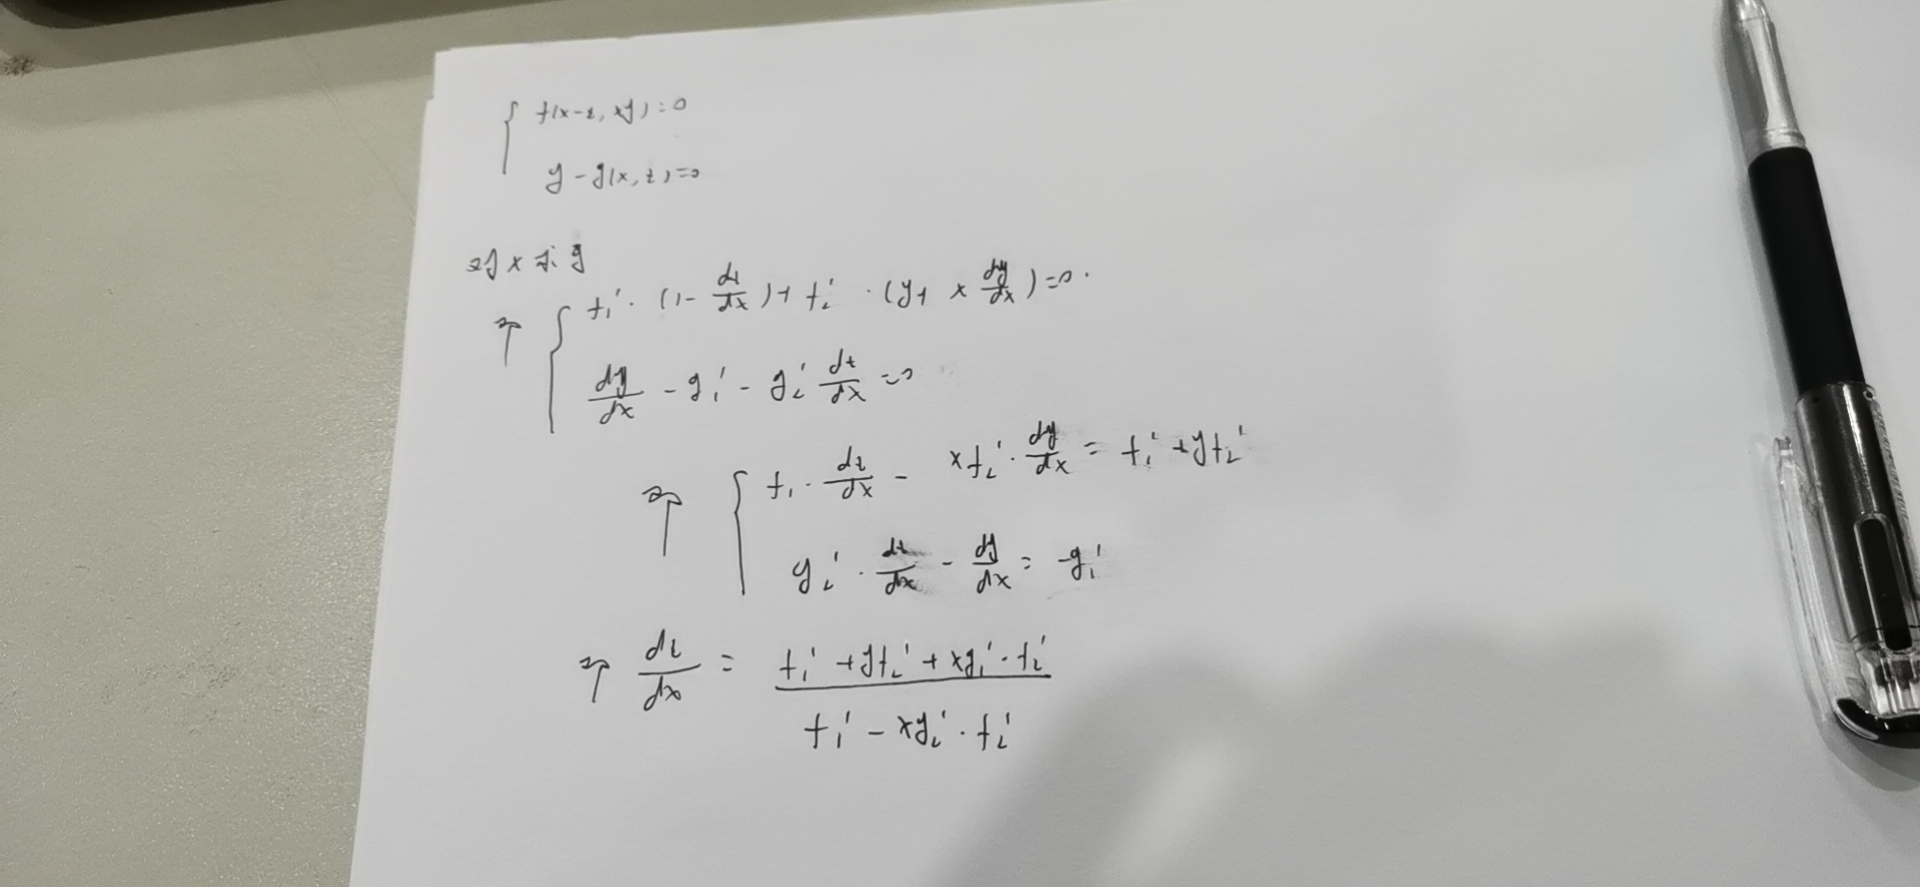 { f(x-z, xy)=0
y-g(x,z)=0
对x求导
⇒ { f₁'·(1-dz/dx)+f₂'·(y+x dy/dx)=0.
dy/dx-g₁'-g₂' dz/dx=0
⇒ { f₁·dz/dx-xf₂'·dy/dx=f₁'+yf₂'
g₂'·dz/dx-dy/dx=-g₁'
⇒ dz/dx=(f₁'+yf₂'+xg₁'·f₂')/(f₁'-xg₂'·f₂')